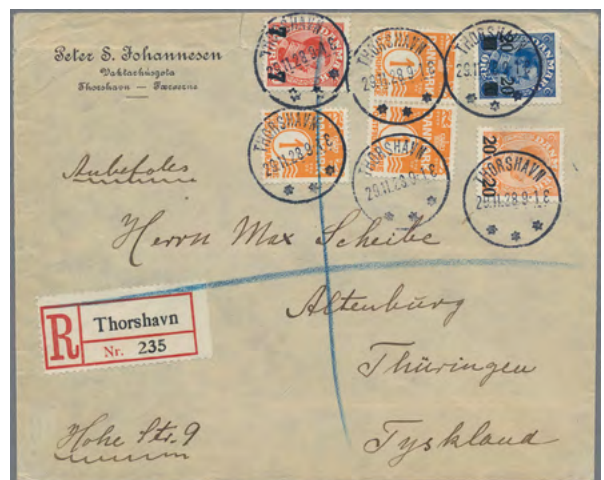 Peter S. Johannesen
Vaktarhúsgøta
Thorshavn — Færøerne
THORSHAVN
29.11.28.9-1.E.
THORSHAVN
29.11.28.9-1.E.
THORSHAVN
29.11
THORSHAVN
29.11.28.9-1.E.
THORSHAVN
29.11.28.9-1.E.
THORSHAVN
29.11.28.9-1.E.
7 7
DANMARK
1
1
DANMARK
20 20
DANMARK
20 20
Anbefales
Herrn Max Scheibe
Altenburg
Thüringen
Tyskland
Hohe Str. 9
R
Thorshavn
Nr. 235